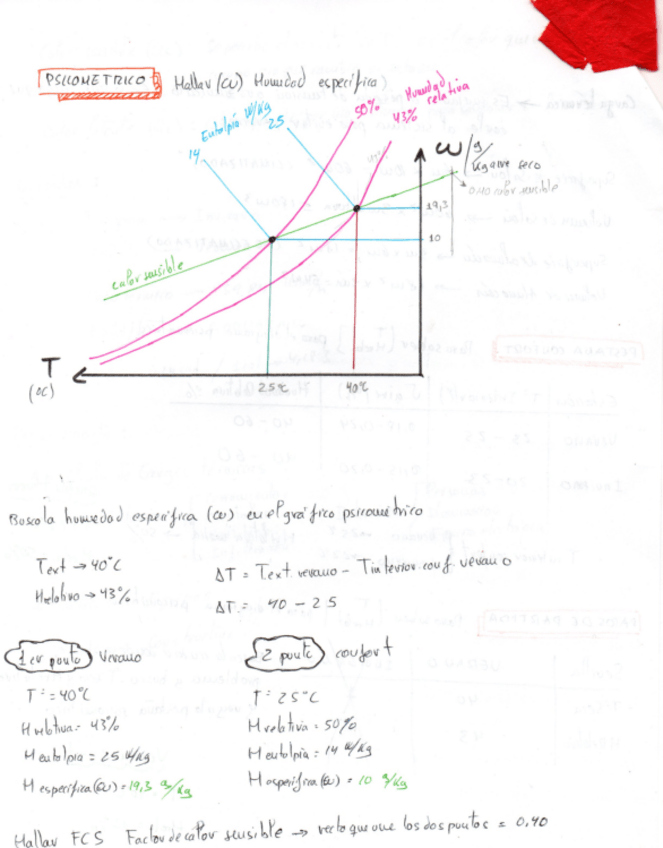 PSICOMETRICO Hallar (ω) Humedad específica)
Entalpía W/Kg
14
25
50%
43%
Humedad relativa
ω/g/
Kg aire seco
0,40 calor sensible
19,3
10
calor sensible
T
(ºC)
25ºC
40ºC
Busco la humedad específica (ω) en el gráfico psicométrico
Text → 40°C
Hrelativa → 43%
ΔT = Text. verano - Tinterior conf. verano
ΔT = 40 - 25
1er punto verano
T = 40°C
H relativa = 43%
H entalpia = 25 W/Kg
H especifica (ω) = 19,3 g/Kg
2 punto confort
T = 25°C
H relativa = 50%
H entalpía = 14 W/Kg
H especifica (ω) = 10 g/Kg
Hallar FCS Factor de calor sensible → recta que une los dos puntos = 0,40